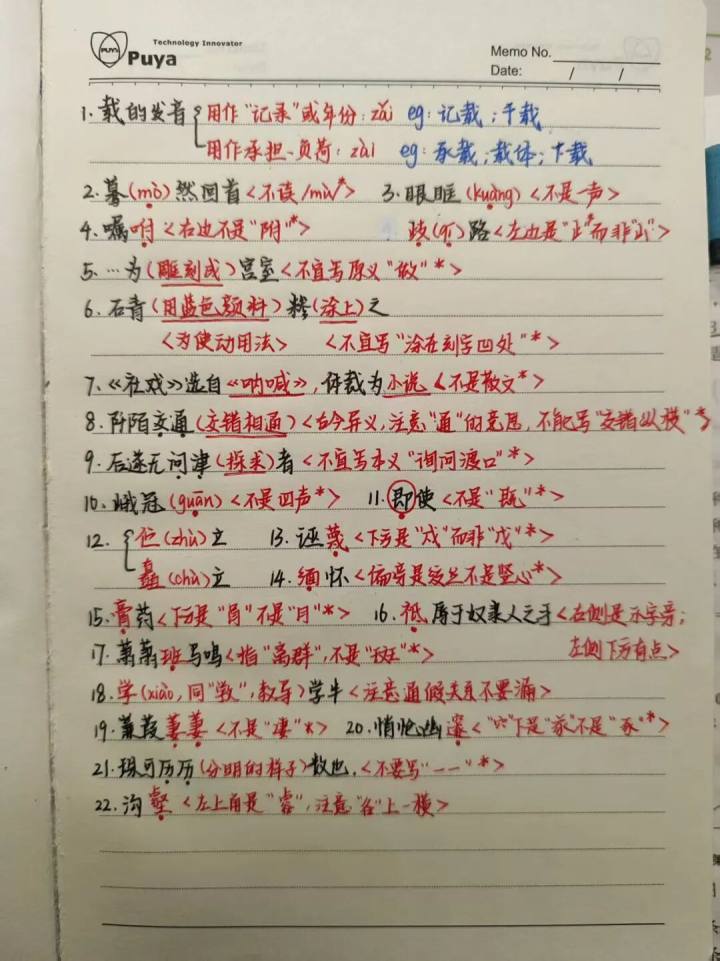 Technology Innovator
PUYA
Puya
Memo No.
Date: / /
1. 载的发音 用作“记录”或年份: zǎi eg: 记载; 千载
用作承担、负荷: zài eg: 承载; 载体; 下载
2. 蓦(mò)然回首<不读/mù/*> 3. 眼眶(kuàng)<不是一声>
4. 嘱咐<右边不是“附”*> 歧(qí)路<左边是“止”*而非“山”>
5. …为(雕刻成)宫室<不宜写原义“做”*>
6. 石青(用蓝色颜料)糁(涂上)之
<为使动用法> <不宜写“涂在刻字凹处”*>
7. 《社戏》选自《呐喊》, 体裁为小说<不是散文*>
8. 阡陌交通(交错相通)<古今异义, 注意“通”的意思, 不能写“交错纵横”*>
9. 后遂无问津(探求)者<不宜写本义“询问渡口”*>
10. 峨冠(guān)<不是四声*> 11. 即使<不是“既”*>
12. 伫(zhù)立 13. 诬蔑<下方是“戍”而非“戊”*>
矗(chù)立 14. 缅怀<偏旁是绞丝不是竖心*>
15. 膏药<下方是“肙”不是“月”*> 16. 祗辱于奴隶人之手<右侧是示字旁;
17. 萧萧班马鸣<指“离群”, 不是“斑”*> 左侧下方有点>
18. 学(xiào, 同“敩”, 教导)学半<注意通假关系不要漏>
19. 蒹葭萋萋<不是“凄”*> 20. 悄怆幽邃<“穴”下是“㒸”不是“豕”*>
21. 珠可历历(分明的样子)数也.<不要写“一一”*>
22. 沟壑<左上角是“㕡”, 注意“谷”上一横>